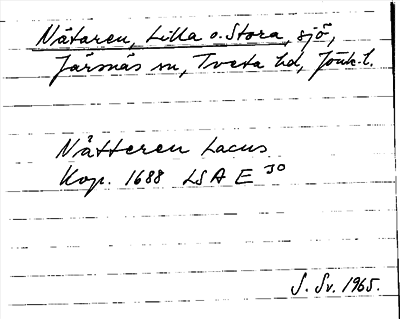 Nätaren, Lilla o. Stora, sjö,
Järsnäs sn, Tveta hd, Jönk. l.
Nåtteren Lacus
Kop. 1688 LSA E 30
S. Sv. 1965.